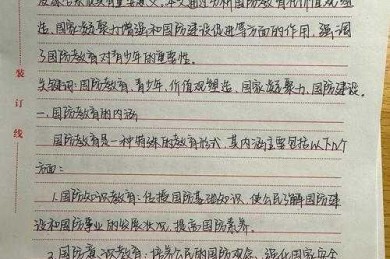 造、国家凝聚力增强和国防建设促进等方面的作用，强调
了国防教育对青少年的重要性。
关键词：国防教育、青少年、价值观塑造、国家凝聚力、国防建设。
一、国防教育的内涵
国防教育是一种特殊的教育形式，其内涵主要包括以下几个
方面：
1.国防知识教育：传授国防基础知识，使公民了解国防建
设和国防事业的发展状况，提高国防素养。
2.国防意识教育：培养公民的国防观念，强化国家安全
装
订
线